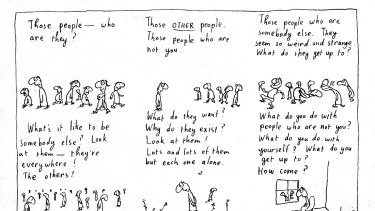 Those people — who
are they?
Those OTHER people.
Those people who are
not you.
Those people who are
somebody else. They
seem so weird and strange
What do they get up to?
What's it like to be
somebody else? Look
at them — they're
everywhere!
The others!
What do they want?
Why do they exist?
Look at them!
Lots and lots of them
but each one alone.
What do you do with
people who are not you?
What do you do with
yourself? What do you
get up to?
How come?